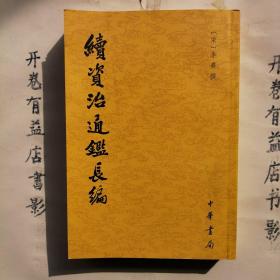 [宋]李燾 撰
續資治通鑑長編
中華書局
开卷有益店書影
开卷有益店书影